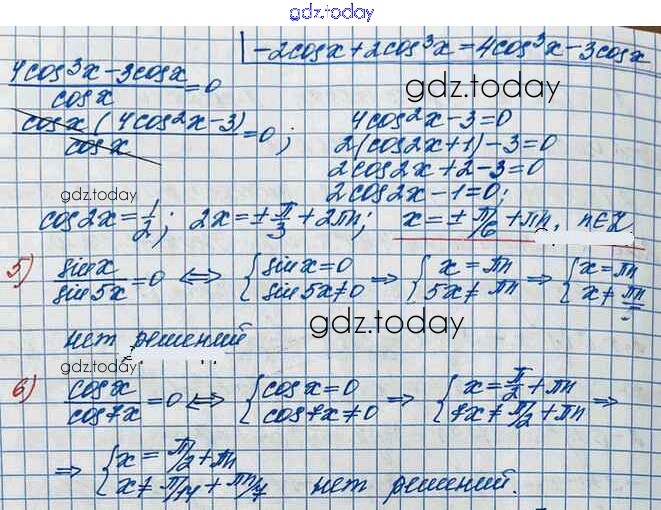 gdz.today
-2cosx+2cos³x=4cos³x-3cosx
(4cos³x-3cosx)/cosx=0
gdz.today
4cos²x-3=0
cosx(4cos²x-3)/cosx=0;
2(cos2x+1)-3=0
2cos2x+2-3=0
gdz.today
2cos2x-1=0;
cos2x=1/2; 2x=±π/3+2πn; x=±π/6+πn, n∈Z
5) sinx/sin5x=0 ⟺ {sinx=0 sin5x≠0 ⇒ {x=πn 5x≠πn ⇒ {x=πn x≠πn/5
нет решений
gdz.today
gdz.today
6) cosx/cos7x=0 ⟺ {cosx=0 cos7x≠0 ⇒ {x=π/2+πn 7x≠π/2+πn ⇒
⇒ {x=π/2+πn x≠π/14+πn/7 нет решений.
gdz.today